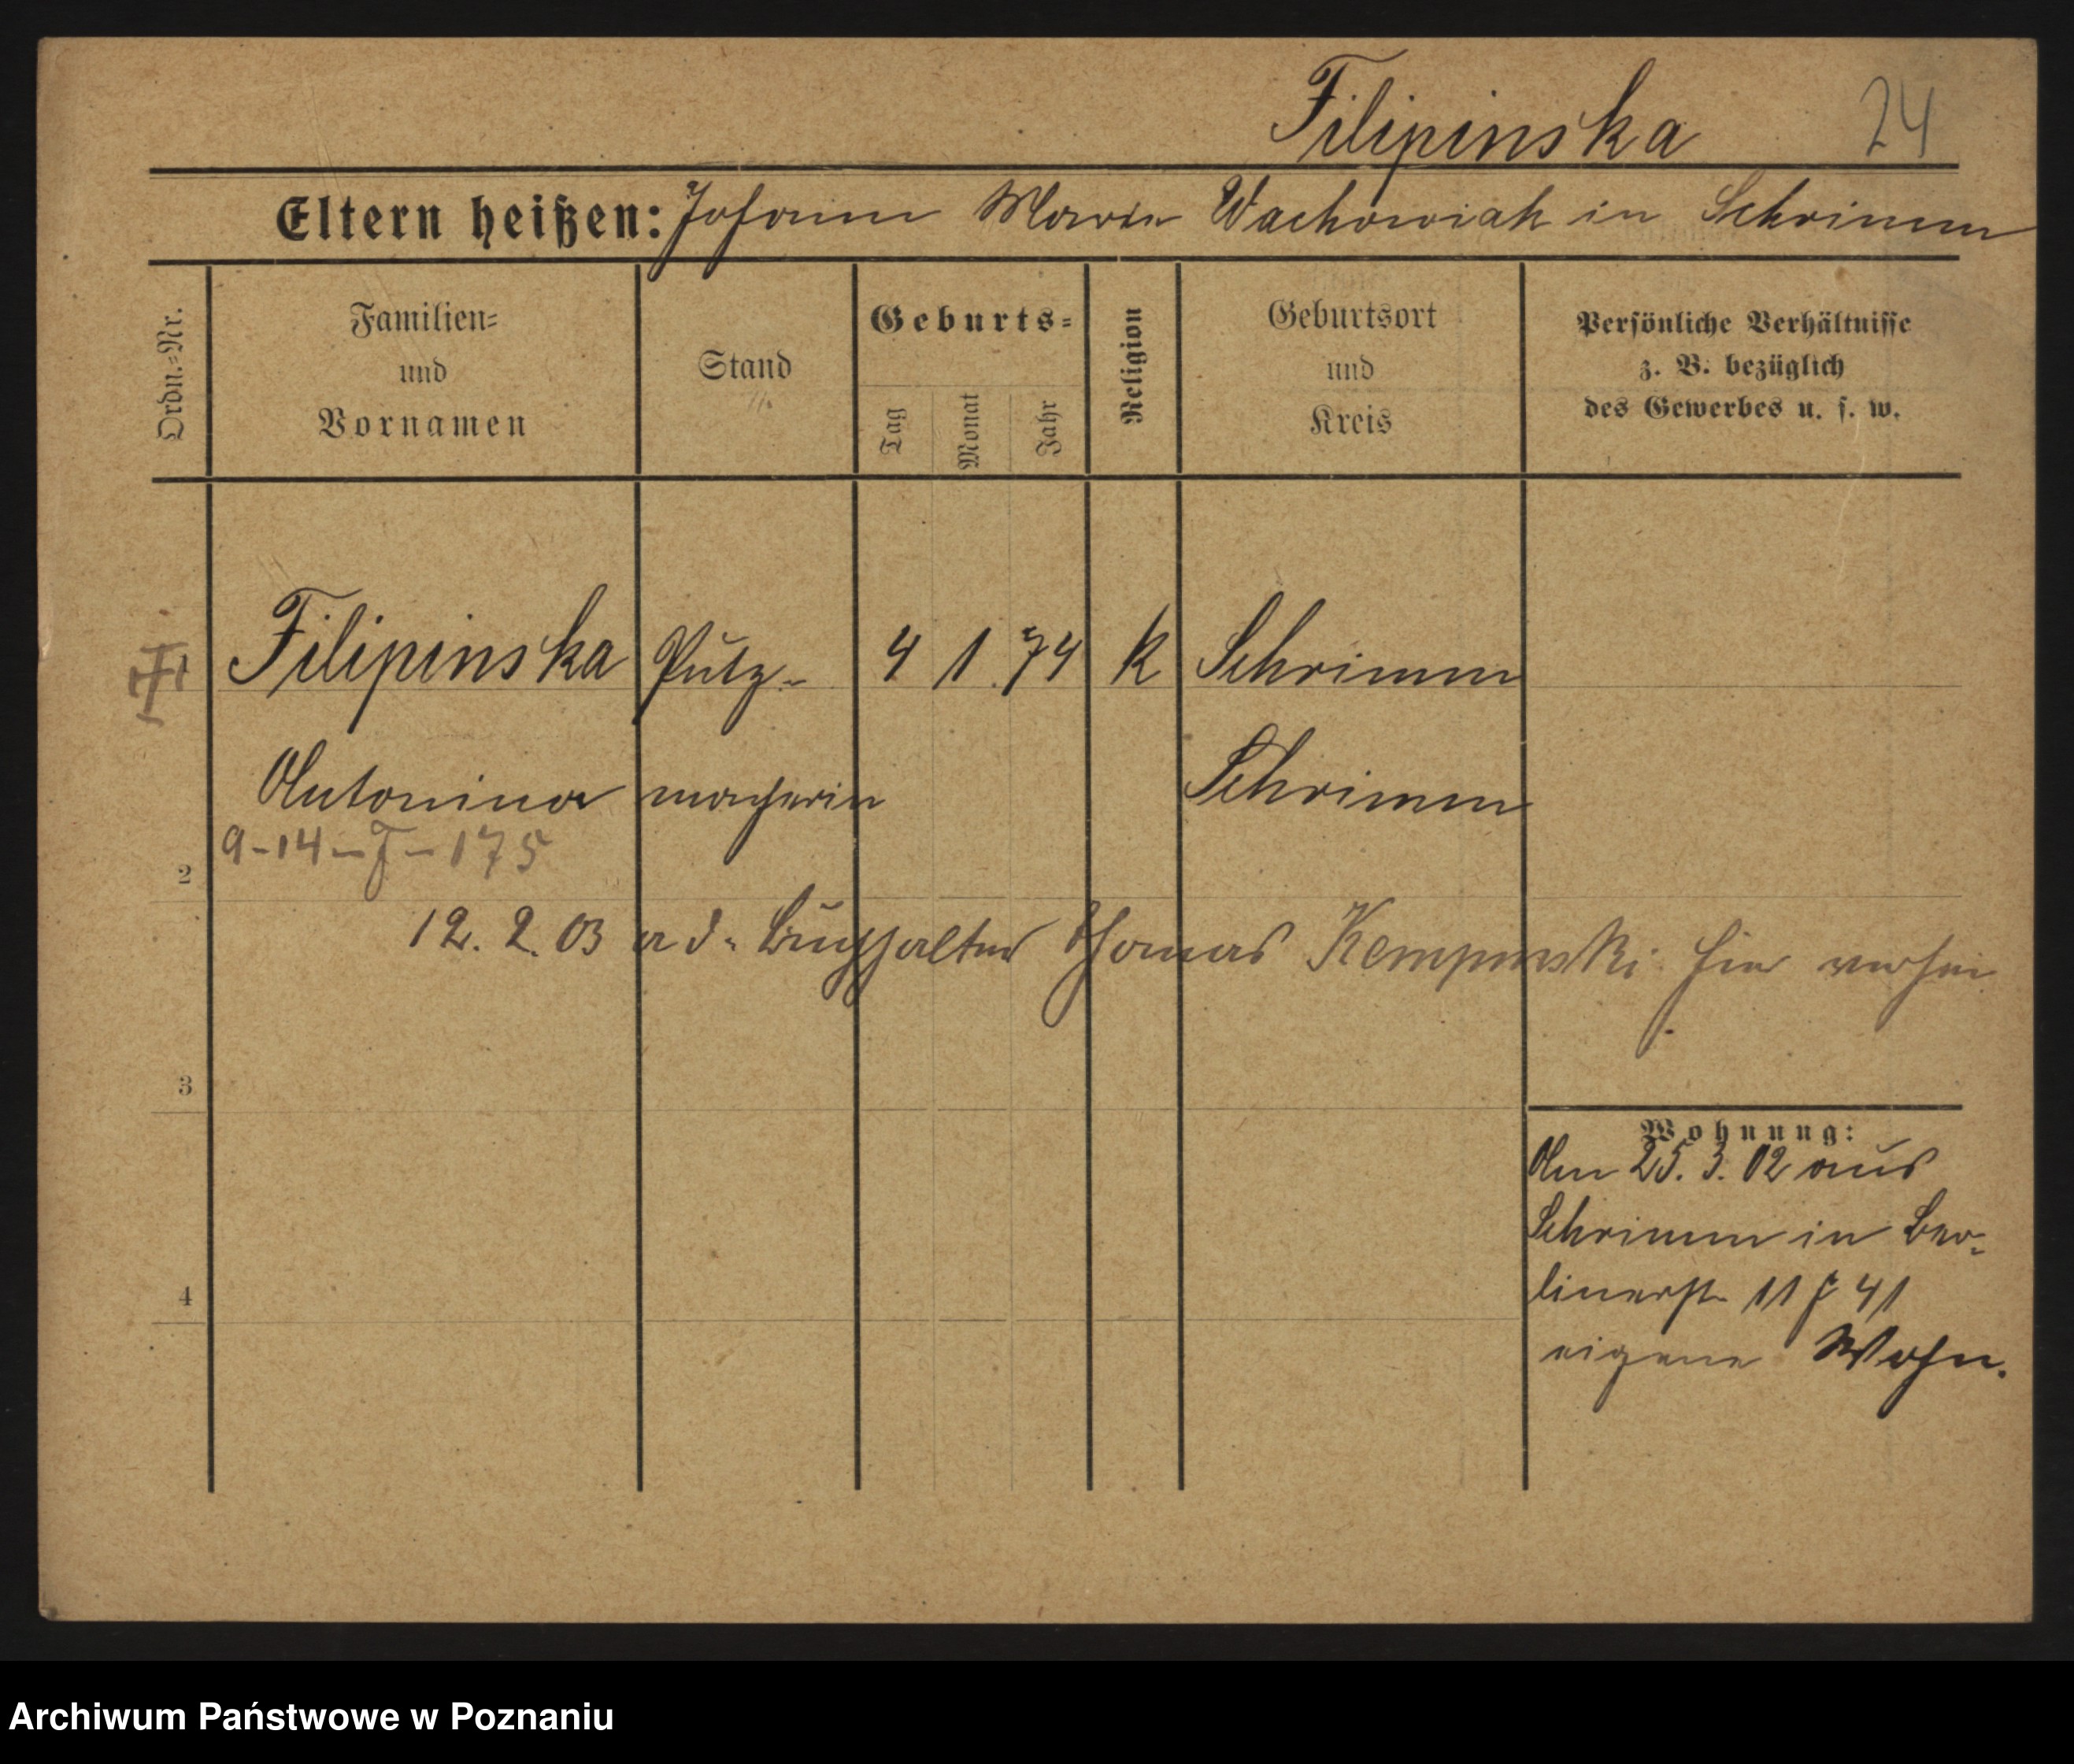 Filipinska 24
Eltern heißen: Johann Maria Wachowiak in Schrimm
Ordn.-Nr.
Familien-
und
Vornamen
Stand
Geburts-
Tag
Monat
Jahr
Religion
Geburtsort
und
Kreis
Persönliche Verhältnisse
z. B. bezüglich
des Gewerbes u. s. w.
1 Filipinska Putz- 4 1. 74 k Schrimm
Antonina macherin Schrimm
9-14-F-175
2
12. 2. 03 a d. Buchhalter Thomas Kempinski hier verhei
3
Wohnung:
Am 25. 3. 02 aus
Schrimm in Ber-
linerst 11 f 41
4
eigene Wohn.
Archiwum Państwowe w Poznaniu